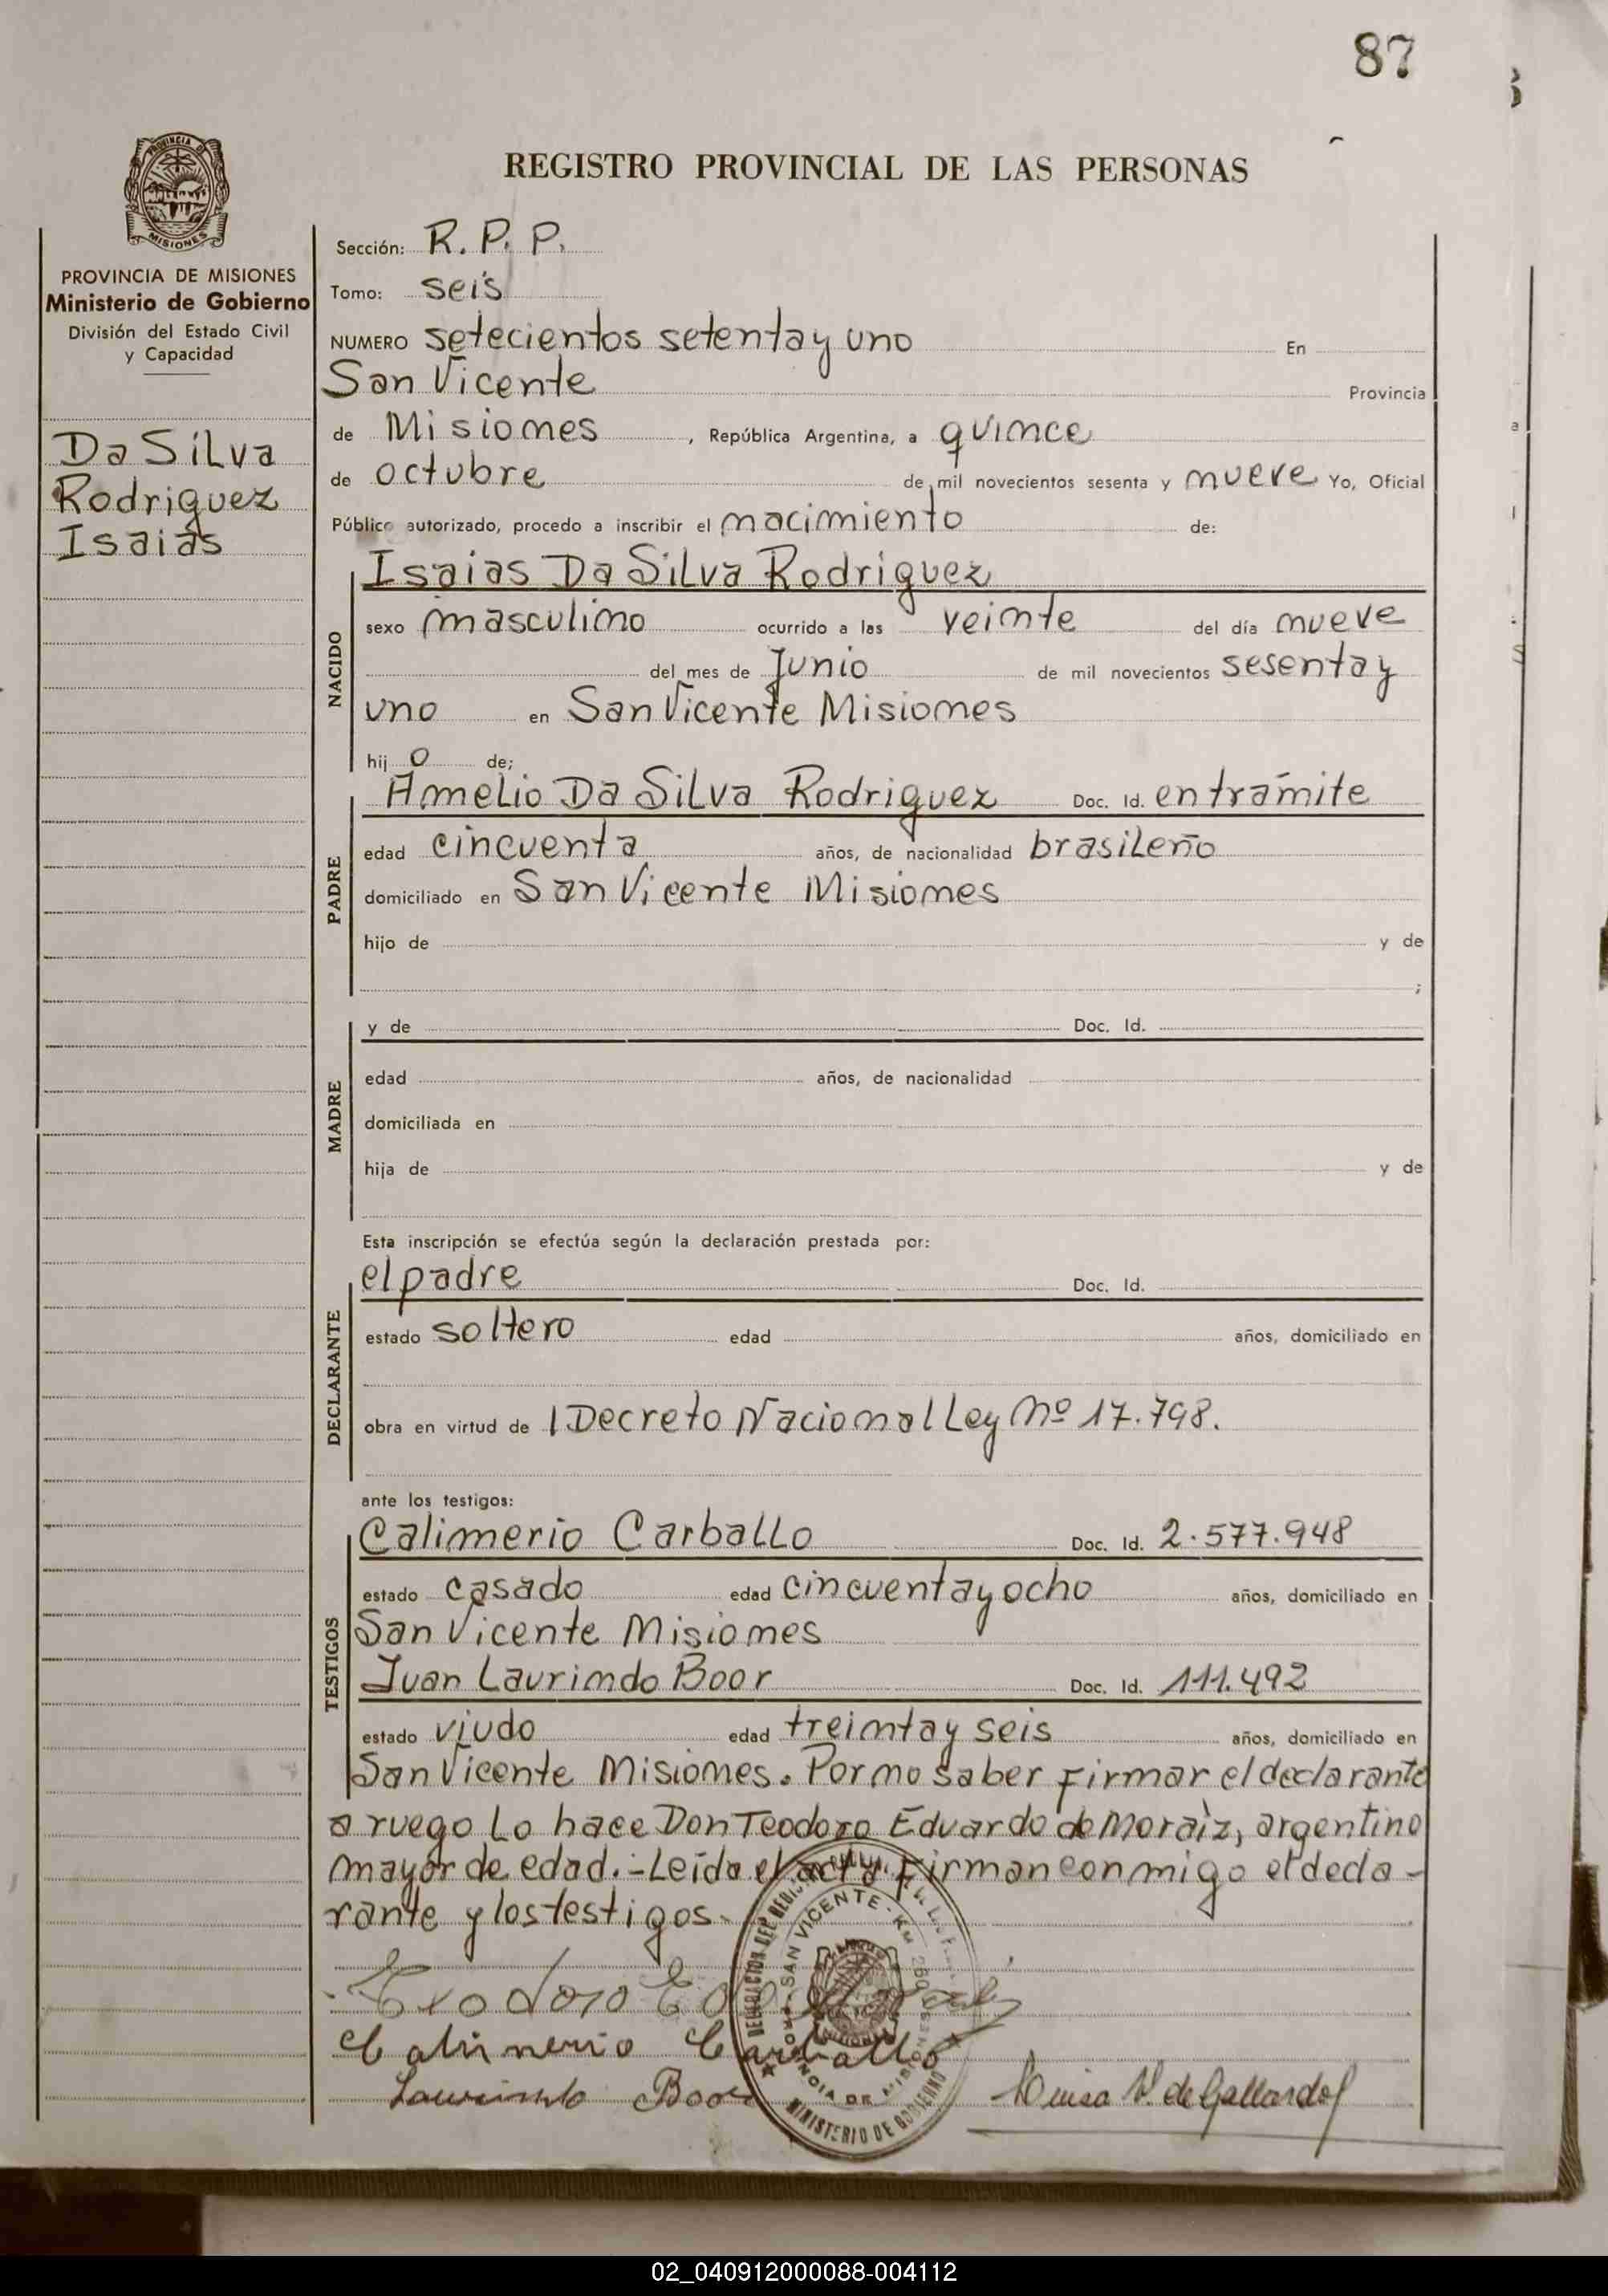 87
REGISTRO PROVINCIAL DE LAS PERSONAS
PROVINCIA DE MISIONES
Ministerio de Gobierno
División del Estado Civil
y Capacidad
Da Silva
Rodriguez
Isaias
Sección: R. P. P.
Tomo: seis
NUMERO setecientos setenta y uno En
San Vicente Provincia
de Misiones , República Argentina, a quince
de octubre de mil novecientos sesenta y nueve Yo, Oficial
Público autorizado, procedo a inscribir el nacimiento de:
NACIDO
Isaias Da Silva Rodriguez
sexo masculino ocurrido a las veinte del día nueve
del mes de Junio de mil novecientos sesenta y
uno en San Vicente Misiones
hij o de;
PADRE
Amelio Da Silva Rodriguez Doc. Id. en trámite
edad cincuenta años, de nacionalidad brasileño
domiciliado en San Vicente Misiones
hijo de y de
;
MADRE
y de Doc. Id.
edad años, de nacionalidad
domiciliada en
hija de y de
Esta inscripción se efectúa según la declaración prestada por:
DECLARANTE
el padre Doc. Id.
estado soltero edad años, domiciliado en
obra en virtud de l Decreto Nacional Ley Nº 17.798.
ante los testigos:
TESTIGOS
Calimerio Carballo Doc. Id. 2.577.948
estado casado edad cincuenta y ocho años, domiciliado en
San Vicente Misiones
Juan Laurindo Boor Doc. Id. 111.492
estado viudo edad treinta y seis años, domiciliado en
San Vicente Misiones. Por no saber firmar el declarante
a ruego lo hace Don Teodoro Eduardo de Moraiz, argentino
mayor de edad.- Leída el acta firman conmigo el decla-
rante y los testigos.
Teodoro
Calimerio Carballo
Laurindo Boor
Luisa V. de Gallardo
SAN VICENTE - KM
PROVINCIA DE MISIONES
MINISTERIO DE GOBIERNO
02_040912000088-004112